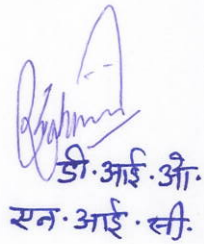 डी·आई·ओ·
एन·आई·सी·